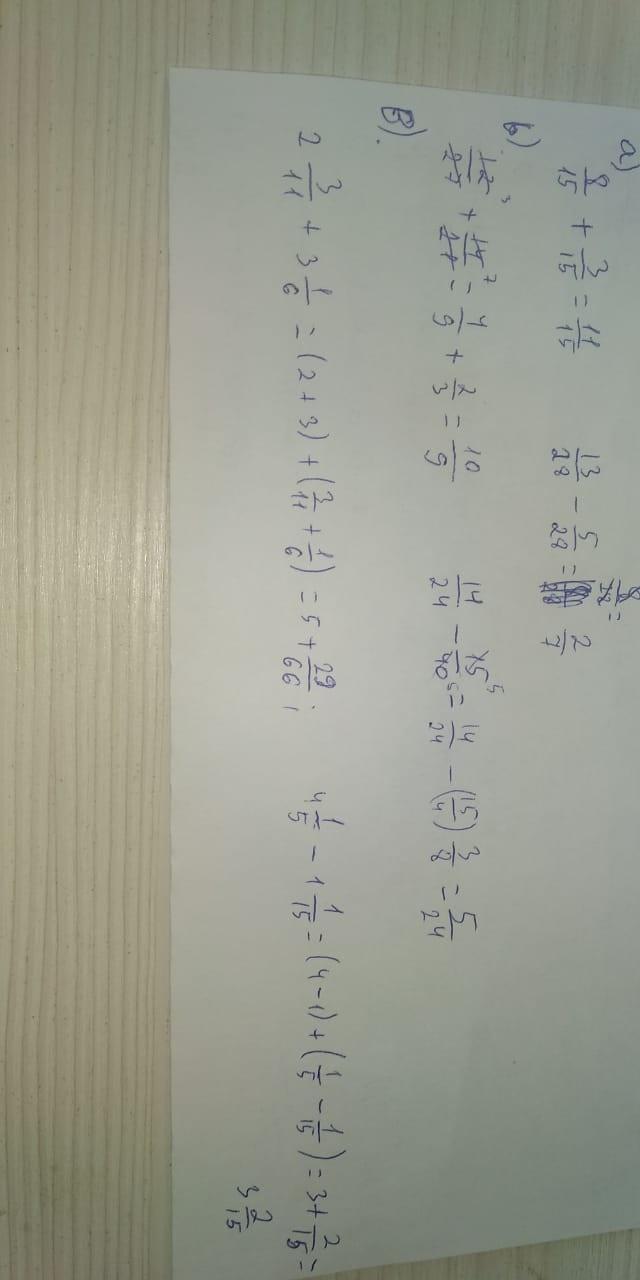 a)
8/15 + 3/15 = 11/15 13/28 - 5/28 = 8/28 = 2/7
b)
12/27 + 14/21 = 4/9 + 2/3 = 10/9 14/24 - 15/40 = 14/24 - (15/4) 3/8 = 5/24
В).
2 3/11 + 3 1/6 = (2 + 3) + (3/11 + 1/6) = 5 + 29/66 ; 4 1/5 - 1 1/15 = (4 - 1) + (1/5 - 1/15) = 3 + 2/15 =
3 2/15